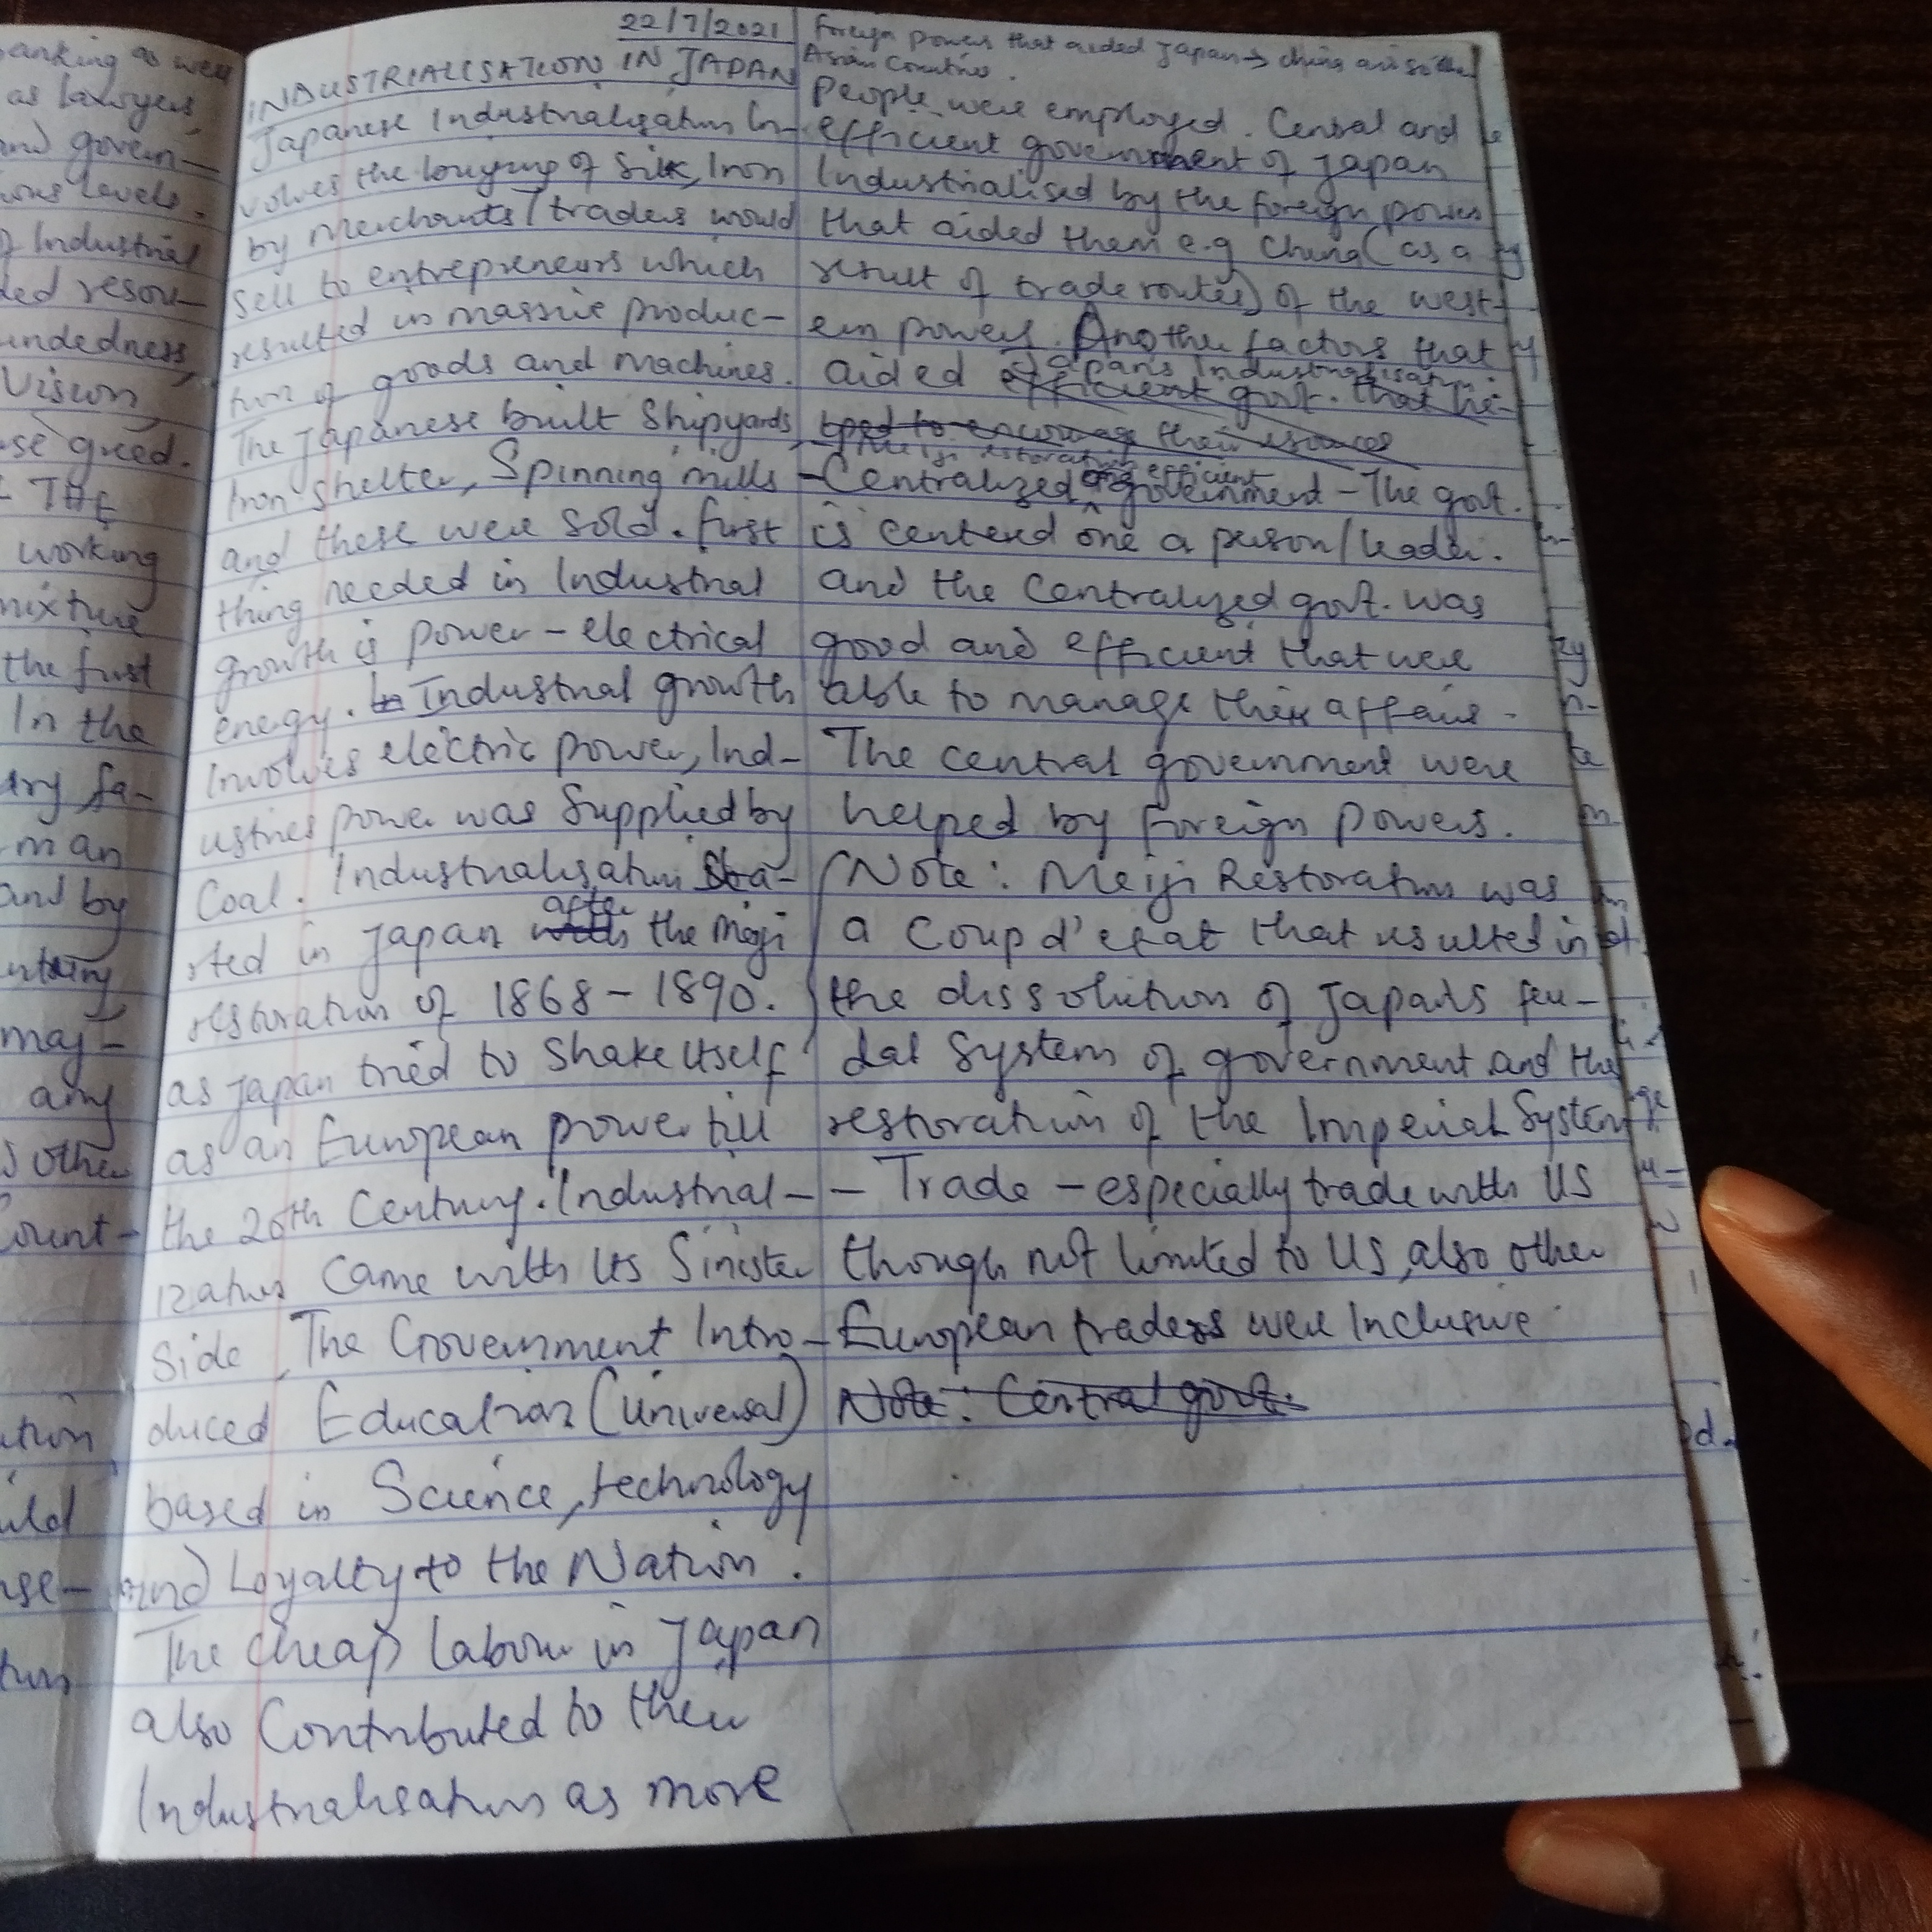 22/7/2021
INDUSTRIALISATION IN JAPAN
Japanese Industrialization In-
volves the buying of Silk, Iron
by merchants/traders would
sell to entrepreneurs which
resulted in massive produc-
tion of goods and machines.
The Japanese built Shipyards,
Iron shelter, Spinning mills
and these were sold. First
thing needed in Industrial
growth is power - electrical
energy. Industrial growth
Involves electric power, Ind-
ustries power was Supplied by
Coal. Industrialisation sta-
rted in Japan after the Meiji
restoration of 1868 - 1890.
as Japan tried to Shake Itself
as an European power till
the 20th Century. Industrial-
ization Came with Its Sinister
Side, The Government Intro-
duced Education (Universal)
based in Science, technology
and Loyalty to the Nation.
The cheap labour in Japan
also Contributed to their
Industrialisation as more
Foreign powers that aided Japan → China and
Asian Countries.
People were employed. Central and
efficient government of Japan
Industrialised by the foreign power
that aided them e.g China (as a
result of trade routes) of the west-
ern powers. Another factors that
aided Japan's Industrialisation:
efficient govt. that he-
lped to encourage their resources
Meiji restoration
- Centralized efficient government - The govt.
is centered one a person/leader.
and the Centralized govt. was
good and efficient that were
able to manage their affairs.
The central government were
helped by Foreign Powers.
Note: Meiji Restoration was
a Coup d'etat that resulted in
the dissolution of Japan's feu-
dal System of government and the
restoration of the Imperial System
- Trade - especially trade with US
though not limited to US, also other
European traders were Inclusive
Note: Central govt.
anking as well
as lawyers
and govern-
levels.
Industrial
Vision
greed.
THE
working
mixture
the first
In the
man
and by
any
other
Count-